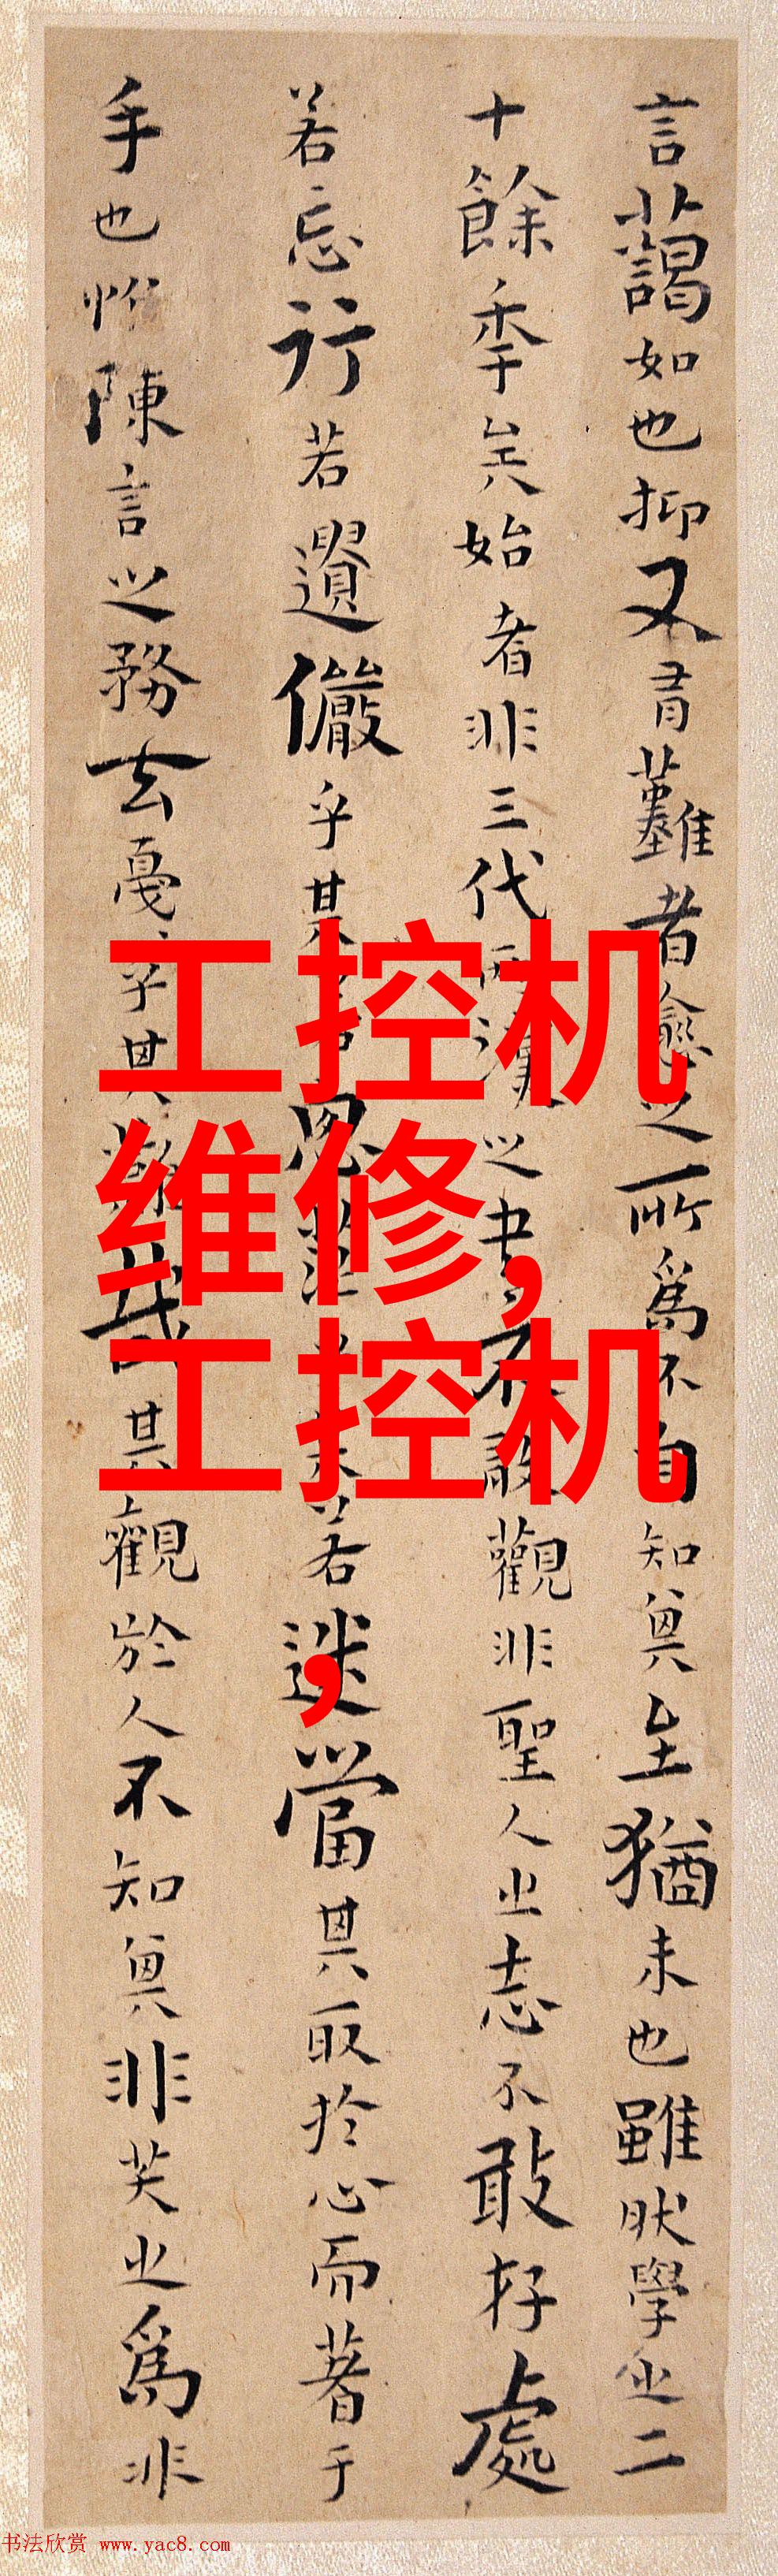 言藹如也抑又有難者愈之所爲不自知其至猶未也雖然學之二
十餘年矣始者非三代兩漢之書不敢觀非聖人之志不敢存處
若忘行若遺儼乎其若思茫乎其若迷當其取於心而著于
手也惟陳言之務去戛乎其難哉其觀於人不知其非笑之爲非
工控机
维修,
工控机
,
书法欣赏 www.yac8.com